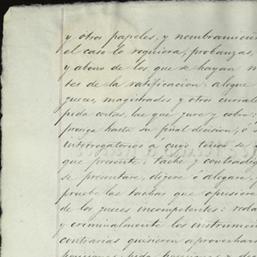 y otros papeles, y nombramien
el caso lo requiera, probanzas,
y abono de los que se hayan
tes de la ratificacion: alegue
jueces, magistrados y otros
pida costas, las que jure y cobre:
prosiga hasta su final decision, ó
interrogatorios a cuyo tenor se
que presente: tache y contradiga
se presentare, dijere ó alegare,
pruebe las tachas que opusiere
de los jueces incompetentes:
y criminalmente los instrumen
contrarias quisieren aprovechar